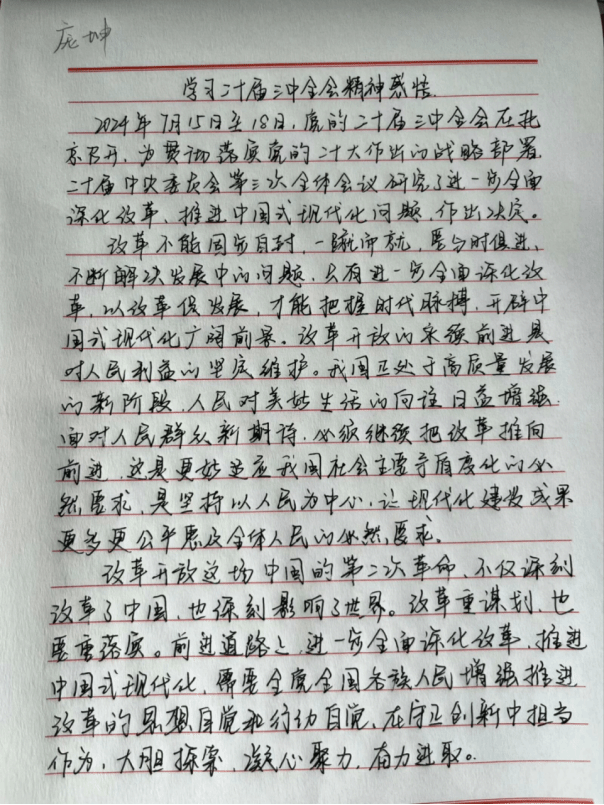 庞坤
学习二十届三中全会精神感悟
2024年7月15日至18日,党的二十届三中全会在北
京召开,为贯彻落实党的二十大作出的战略部署,
二十届中央委员会第三次全体会议研究了进一步全面
深化改革、推进中国式现代化问题,作出决定。
改革不能固步自封,一蹴而就,要与时俱进、
不断解决发展中的问题,只有进一步全面深化改
革,以改革促发展,才能把握时代脉搏,开辟中
国式现代化广阔前景。改革开放的永续前进是
对人民利益的坚决维护。我国正处于高质量发展
的新阶段,人民对美好生活的向往日益增强,
面对人民群众新期待,必须继续把改革推向
前进,这是更好适应我国社会主要矛盾变化的必
然要求,是坚持以人民为中心,让现代化建设成果
更多更公平惠及全体人民的必然要求。
改革开放这场中国的第二次革命,不仅深刻
改革了中国,也深刻影响了世界。改革重谋划,也
要重落实。前进道路上,进一步全面深化改革,推进
中国式现代化,需要全党全国各族人民增强推进
改革的思想自觉和行动自觉,在守正创新中担当
作为,大胆探索,凝心聚力,奋力进取。